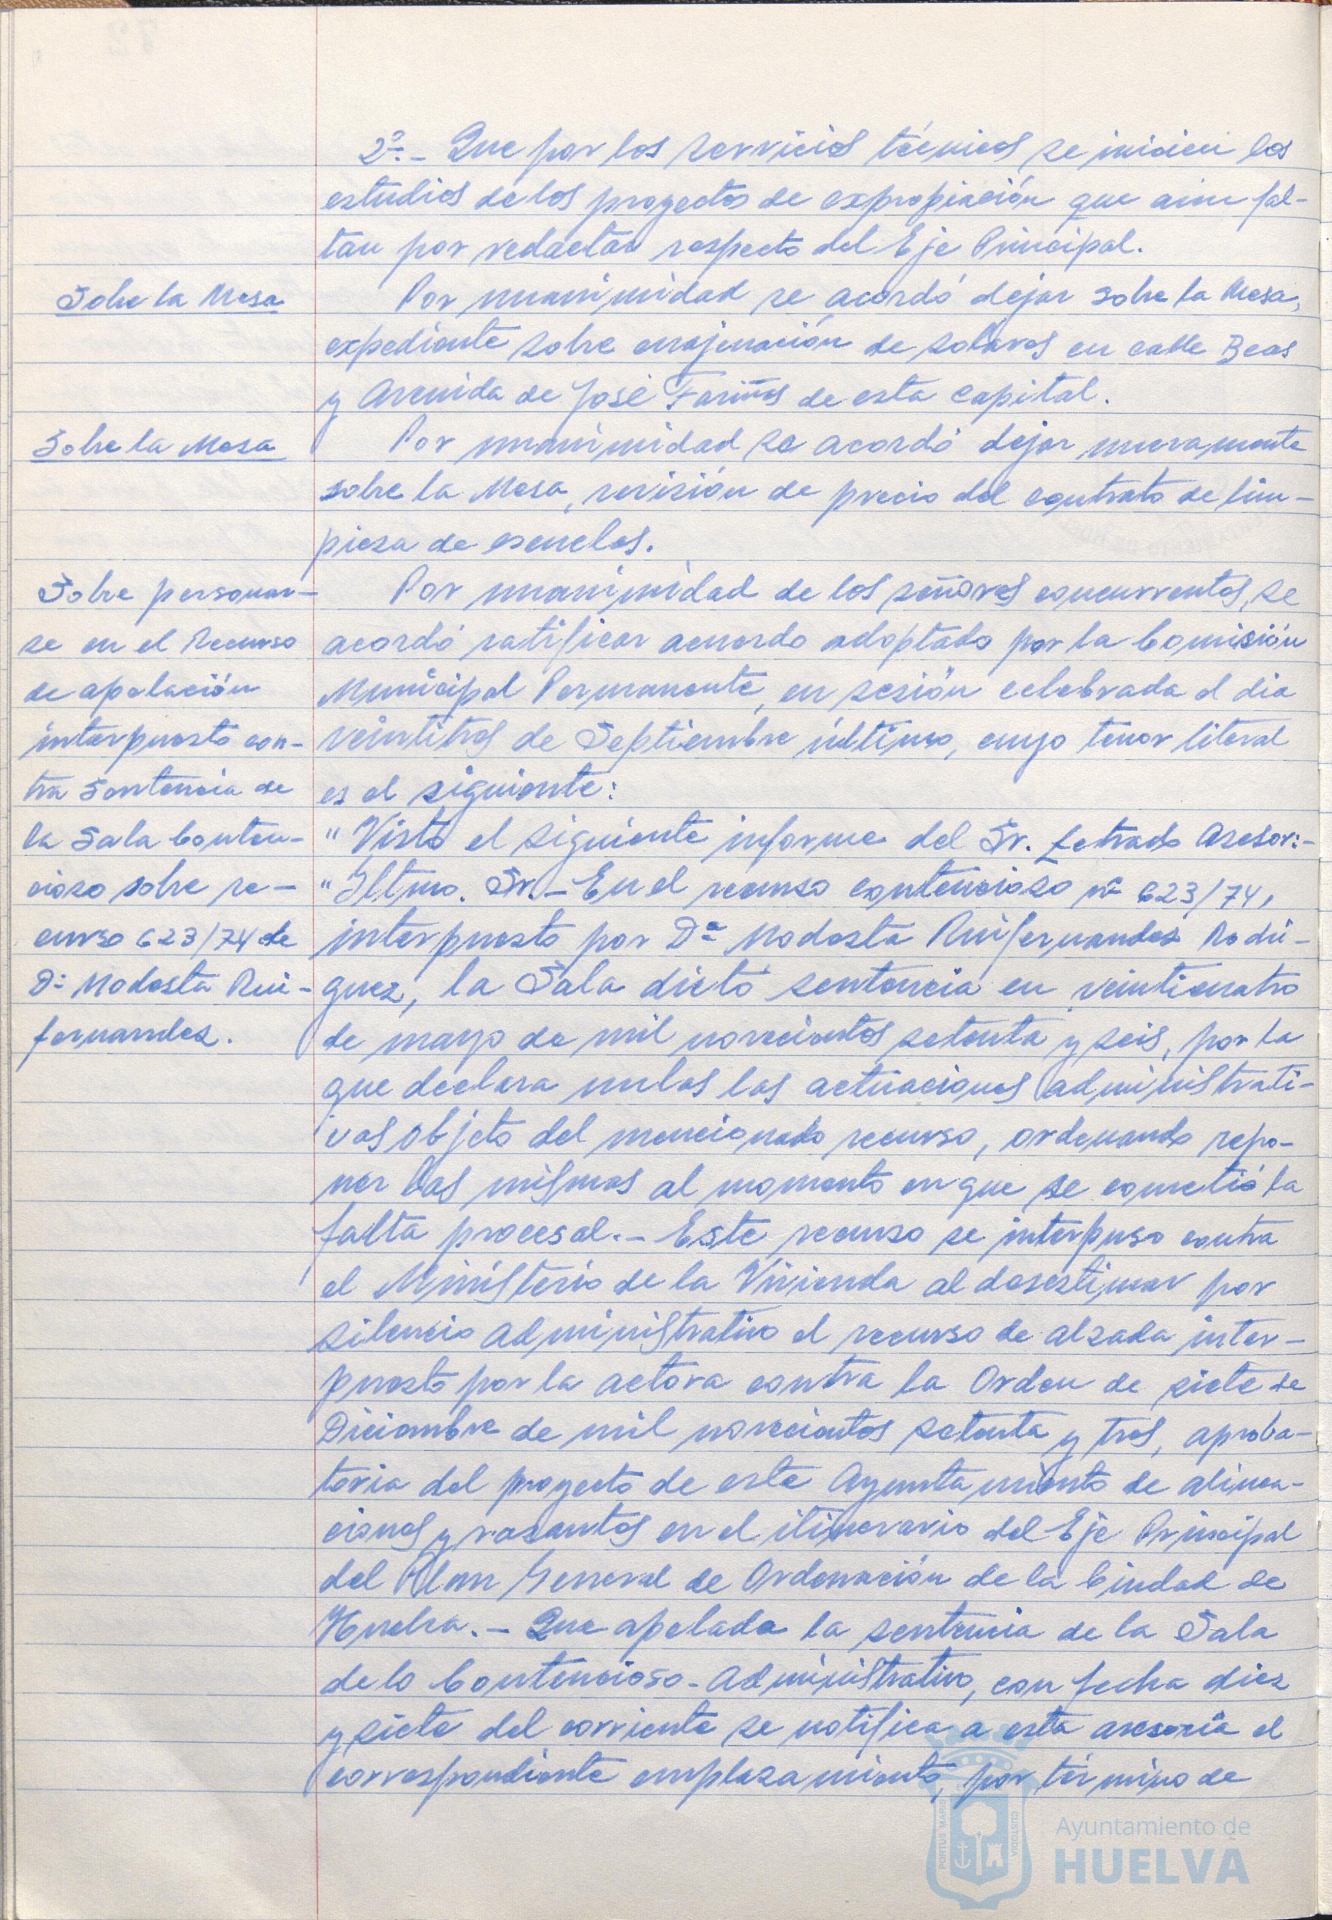 2º.- Que por los servicios técnicos se inicien los
estudios de los proyectos de expropiación que aun fal-
tan por redactar respecto del Eje Principal.
Sobre la Mesa
Por unanimidad se acordó dejar sobre la Mesa,
expediente sobre enajenación de solares en calle Beas
y Avenida de José Fariñas de esta capital.
Sobre la Mesa
Por unanimidad se acordó dejar nuevamente
sobre la Mesa, revisión de precio del contrato de lim-
pieza de escuelas.
Sobre personar-
se en el Recurso
de apelación
interpuesto con-
tra Sentencia de
la Sala Conten-
cioso sobre re-
curso 623/74 de
Dª Modesta Rui-
fernandez.
Por unanimidad de los señores concurrentes, se
acordó ratificar acuerdo adoptado por la Comisión
Municipal Permanente, en sesión celebrada el dia
veintitres de Septiembre último, cuyo tenor literal
es el siguiente:
"Visto el siguiente informe del Sr. Letrado Asesor:-
"Iltmo. Sr.- En el recurso contencioso nº 623/74,
interpuesto por Dª Modesta Ruifernandez Rodri-
guez, la Sala dictó sentencia en veinticuatro
de mayo de mil novecientos setenta y seis, por la
que declara nulas las actuaciones administrati-
vas objeto del mencionado recurso, ordenando repo-
ner las mismas al momento en que se cometió la
falta procesal.- Este recurso se interpuso contra
el Ministerio de la Vivienda al desestimar por
silencio administrativo el recurso de alzada inter-
puesto por la actora contra la Orden de siete de
Diciembre de mil novecientos setenta y tres, aproba-
toria del proyecto de este Ayuntamiento de alinea-
ciones y rasantes en el itinerario del Eje Principal
del Plan General de Ordenación de la Ciudad de
Huelva.- Que apelada la sentencia de la Sala
de lo Contencioso-Administrativo, con fecha diez
y siete del corriente se notifica a esta asesoria el
correspondiente emplazamiento, por término de
PORTUS MARIS
CUSTODIA
Ayuntamiento de
HUELVA